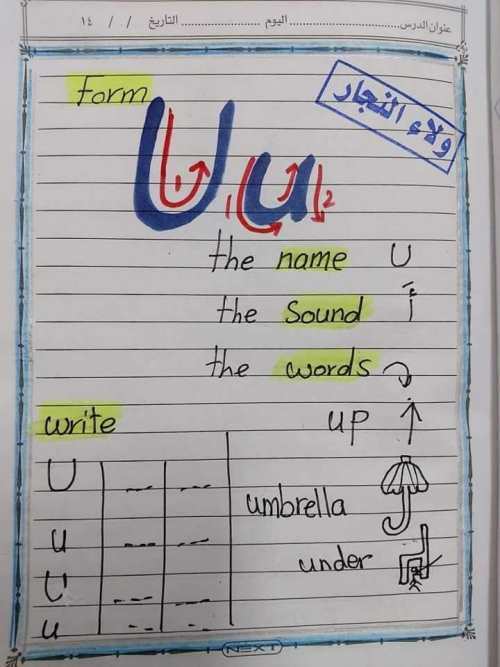 عنوان الدرس ............ اليوم ............ التاريخ / / ١٤
Form
ولاء النجار
U u
1 1 2
the name U
the sound أَ
the words
write
up
U
umbrella
u
under
U
u
NEXT